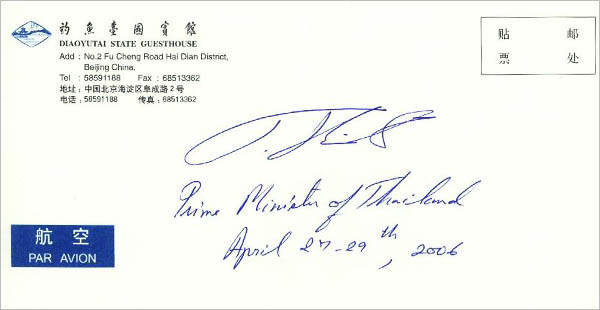 釣魚臺國賓館
DIAOYUTAI STATE GUESTHOUSE
Add : No.2 Fu Cheng Road Hai Dian District,
Beijing China.
Tel : 58591188 Fax : 68513362
地址: 中国北京海淀区阜成路2号
电话: 58591188 传真: 68513362
贴 邮
票 处
Prime Minister of Thailand
April 27-29th, 2006
航 空
PAR AVION